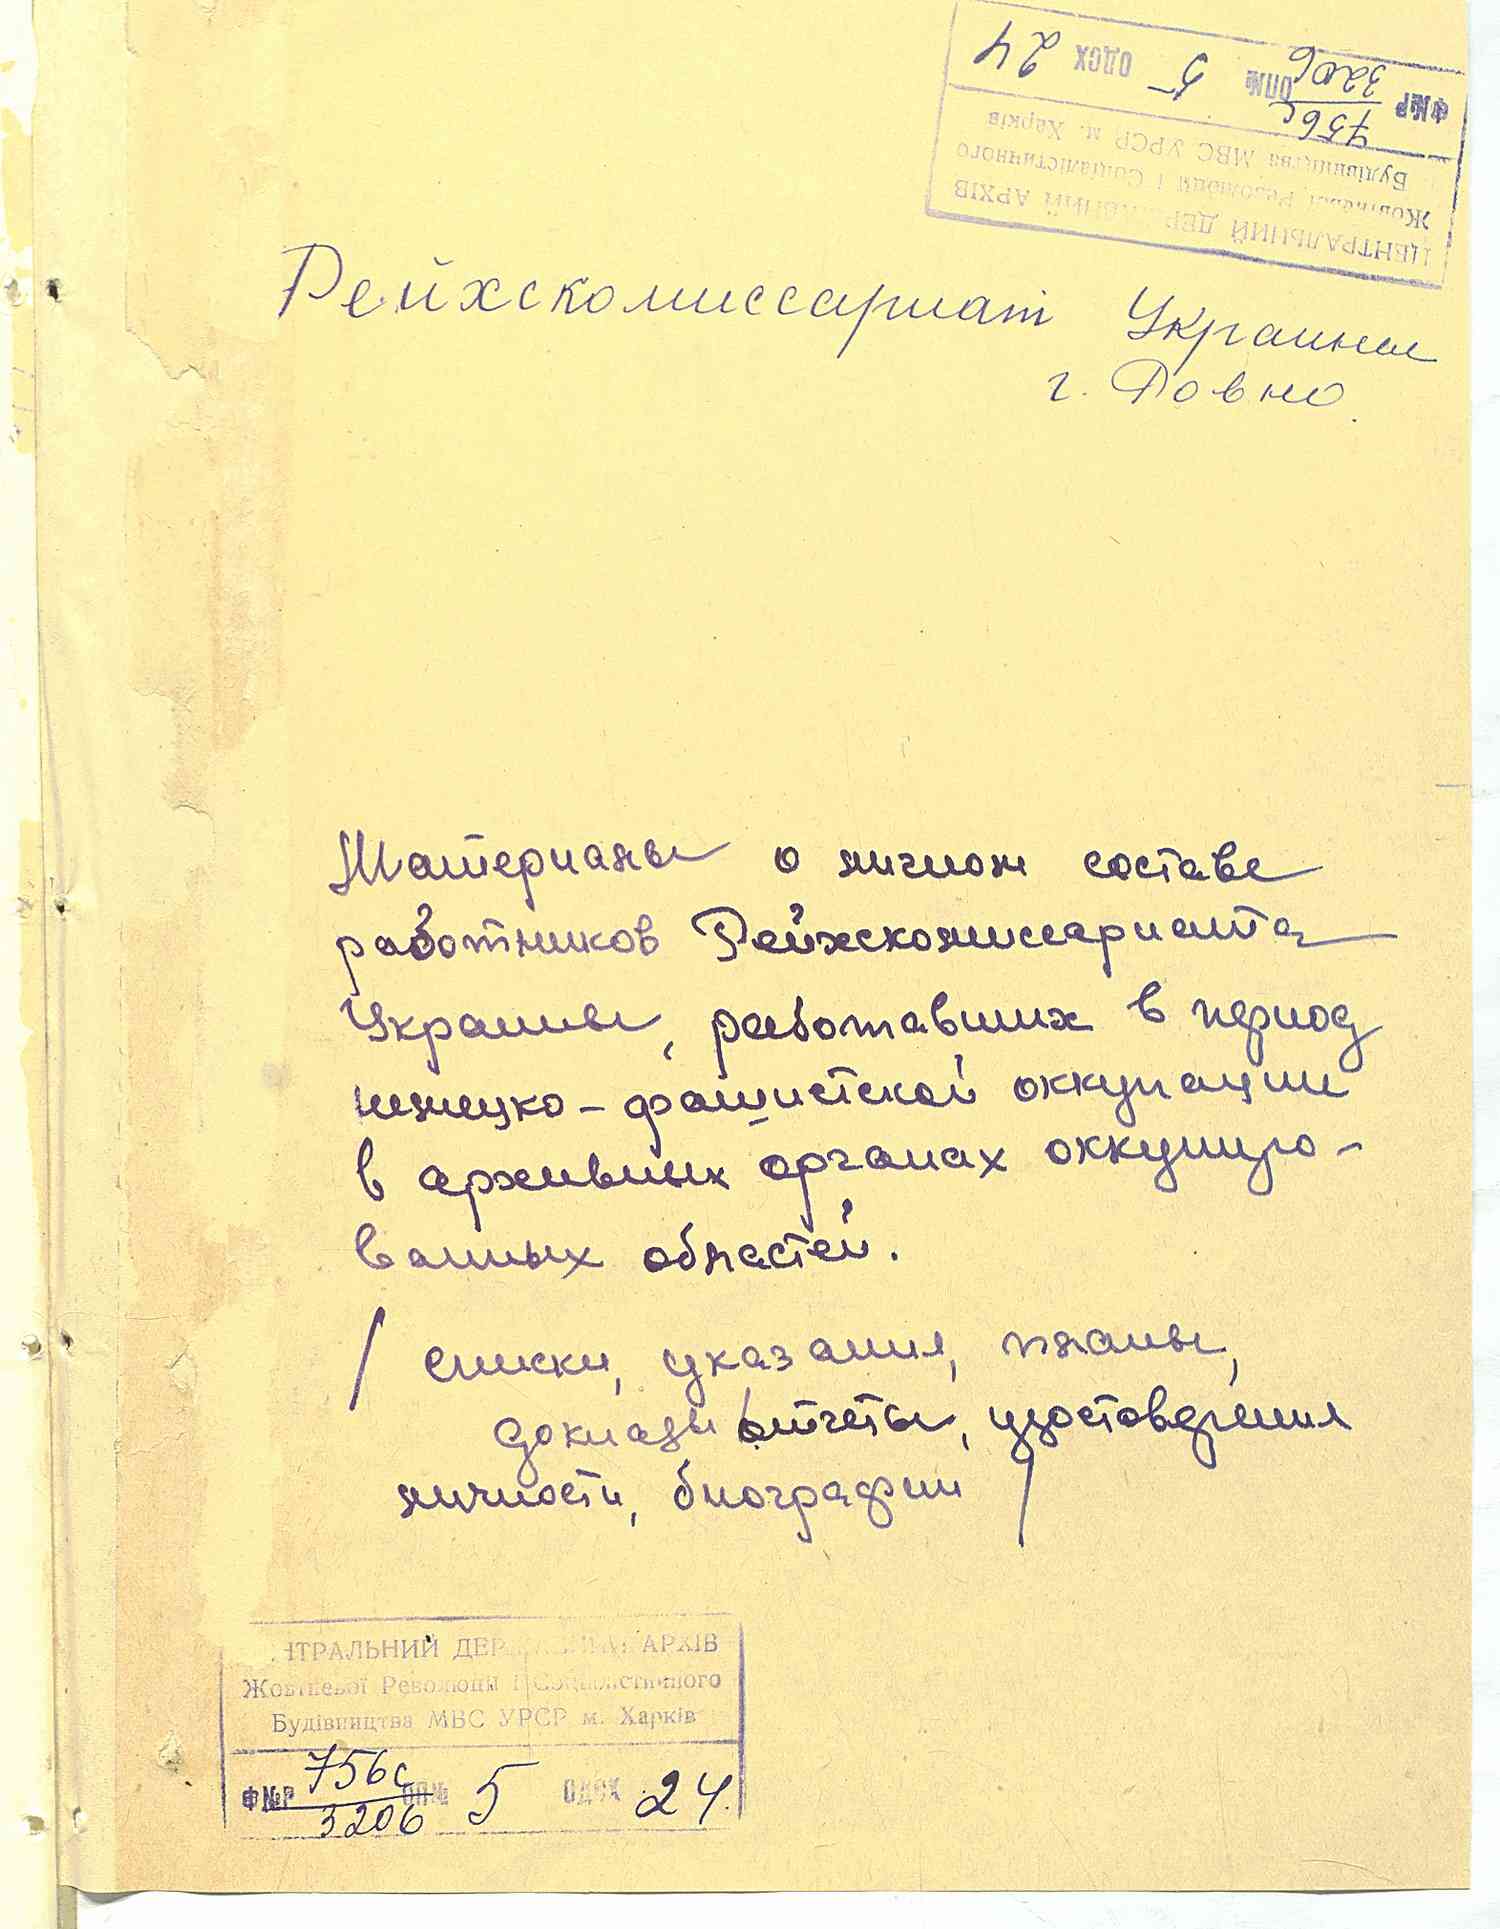 ЦЕНТРАЛЬНИЙ ДЕРЖАВНИЙ АРХІВ
Жовтневої Революції і Соціалістичного
Будівництва МВС УРСР м. Харків
Ф№Р 756с/3206 ОП№ 5 ОДСХ 24
Рейхскомиссариат Украины
г. Ровно.
Материалы о личном составе
работников Рейхскомиссариата
Украины, работавших в период
немецко-фашистской оккупации
в архивных органах оккупиро-
ванных областей.
/ списки, указания, планы,
доклады, отчеты, удостоверения
личности, биографии /
НТРАЛЬНИЙ ДЕРЖАВНИЙ АРХІВ
Жовтневої Революції і Соціалістичного
Будівництва МВС УРСР м. Харків
Ф№Р 756с/3206 ОП№ 5 ОДСХ 24.